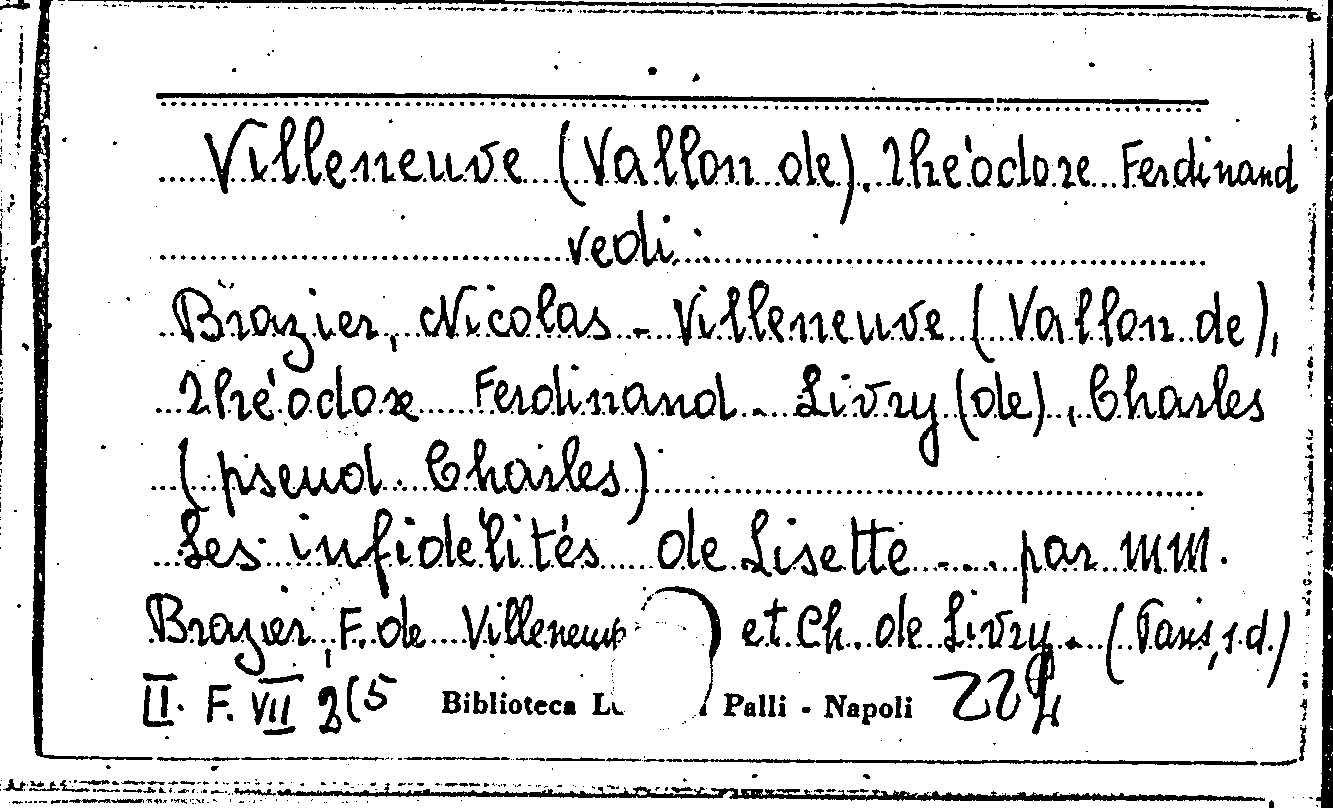 Villeneuve (Vallon de). Théodore Ferdinand
vedi:
Brazier, Nicolas - Villeneuve (Vallon de),
Théodore Ferdinand - Livry (de), Charles
(pseud. Charles)
Les infidélités de Lisette .... par MM.
Brazier, F. de Villeneuve et Ch. de Livry. (Paris, s.d.)
LI. F. VII 2(5 Biblioteca Palli - Napoli